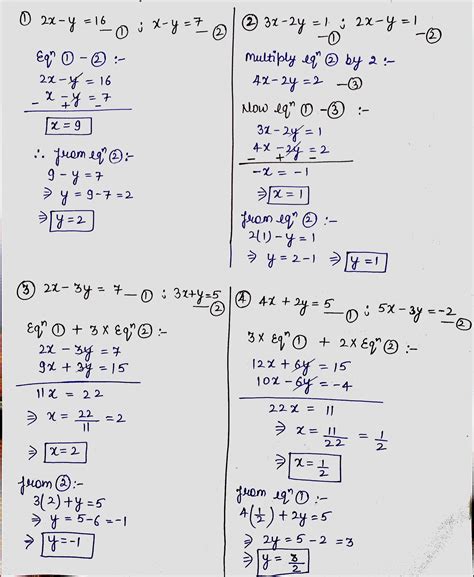 ① 2x-y = 16 —① ; x-y = 7 —②
Eqⁿ ① - ② :-
2x - y = 16
- x - y = 7
- + -
x = 9
∴ from eqⁿ ② :-
9 - y = 7
⇒ y = 9-7 = 2
⇒ y = 2
② 3x-2y = 1 —① ; 2x-y = 1 —②
Multiply eqⁿ ② by 2 :-
4x - 2y = 2 —③
Now eqⁿ ① - ③ :-
3x - 2y = 1
4x - 2y = 2
- + -
-x = -1
⇒ x = 1
from eqⁿ ② :-
2(1) - y = 1
⇒ y = 2-1 ⇒ y = 1
③ 2x - 3y = 7 —① ; 3x+y = 5 —②
Eqⁿ ① + 3 × Eqⁿ ② :-
2x - 3y = 7
9x + 3y = 15
11x = 22
⇒ x = 22/11 = 2
⇒ x = 2
from ② :-
3(2) + y = 5
⇒ y = 5-6 = -1
⇒ y = -1
④ 4x + 2y = 5 —① ; 5x - 3y = -2 —②
3 × Eqⁿ ① + 2 × Eqⁿ ② :-
12x + 6y = 15
10x - 6y = -4
22x = 11
⇒ x = 11/22 = 1/2
⇒ x = 1/2
from eqⁿ ① :-
4(1/2) + 2y = 5
⇒ 2y = 5-2 = 3
⇒ y = 3/2